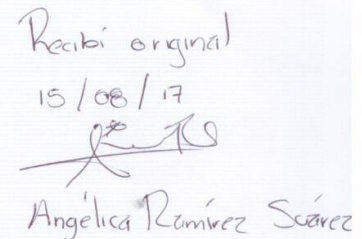 Recibi original
15/08/17
Angélica Ramírez Suárez